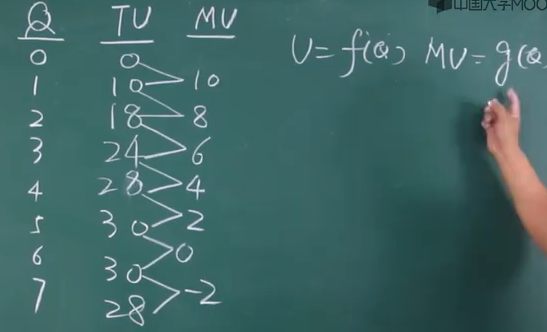 中国大学MOO
Q TU MU
0 0
1 10 10
2 18 8
3 24 6
4 28 4
5 30 2
6 30 0
7 28 -2
U=f(Q) MU=g(Q